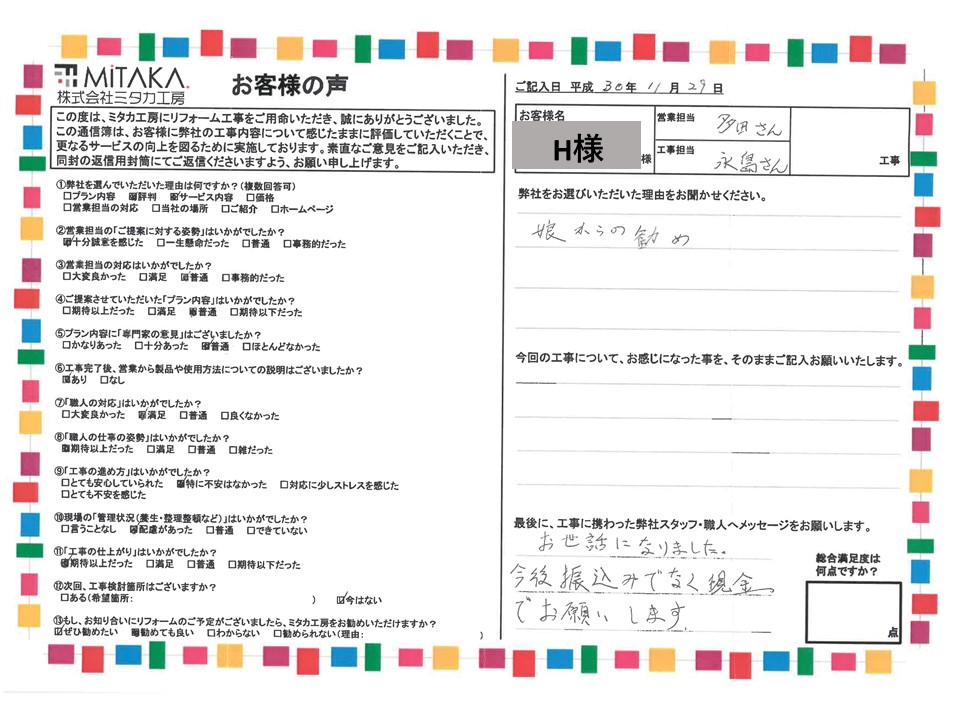 MiTAKA
株式会社ミタカ工房
お客様の声
この度は、ミタカ工房にリフォーム工事をご用命いただき、誠にありがとうございました。
この通信簿は、お客様に弊社の工事内容について感じたままに評価していただくことで、
更なるサービスの向上を図るために実施しております。素直なご意見をご記入いただき、
同封の返信用封筒にてご返信くださいますよう、お願い申し上げます。
①弊社を選んでいただいた理由は何ですか？(複数回答可)
□プラン内容 ☑評判 ☑サービス内容 □価格
□営業担当の対応 □当社の場所 □ご紹介 □ホームページ
②営業担当の「ご提案に対する姿勢」はいかがでしたか？
☑十分誠意を感じた □一生懸命だった □普通 □事務的だった
③営業担当の対応はいかがでしたか？
□大変良かった □満足 ☑普通 □事務的だった
④ご提案させていただいた「プラン内容」はいかがでしたか？
□期待以上だった □満足 ☑普通 □期待以下だった
⑤プラン内容に「専門家の意見」はございましたか？
□かなりあった □十分あった ☑普通 □ほとんどなかった
⑥工事完了後、営業から製品や使用方法についての説明はございましたか？
☑あり □なし
⑦「職人の対応」はいかがでしたか？
□大変良かった ☑満足 □普通 □良くなかった
⑧「職人の仕事の姿勢」はいかがでしたか？
☑期待以上だった □満足 □普通 □雑だった
⑨「工事の進め方」はいかがでしたか？
□とても安心していられた ☑特に不安はなかった □対応に少しストレスを感じた
□とても不安を感じた
⑩現場の「管理状況(養生・整理整頓など)」はいかがでしたか？
□言うことなし ☑配慮があった □普通 □できていない
⑪「工事の仕上がり」はいかがでしたか？
☑期待以上だった □満足 □普通 □期待以下だった
⑫次回、工事検討箇所はございますか？
□ある(希望箇所: ) ☑今はない
⑬もし、お知り合いにリフォームのご予定がございましたら、ミタカ工房をお勧めいただけますか？
☑ぜひ勧めたい ☑勧めても良い □わからない □勧められない(理由: )
ご記入日 平成 30年 11月 29日
お客様名
H様
様
営業担当 多田さん
工事担当 永島さん
工事
弊社をお選びいただいた理由をお聞かせください。
娘からの勧め
今回の工事について、お感じになった事を、そのままご記入お願いいたします。
最後に、工事に携わった弊社スタッフ・職人へメッセージをお願いします。
お世話になりました。
今後振込みでなく現金
でお願いします
総合満足度は
何点ですか？
点